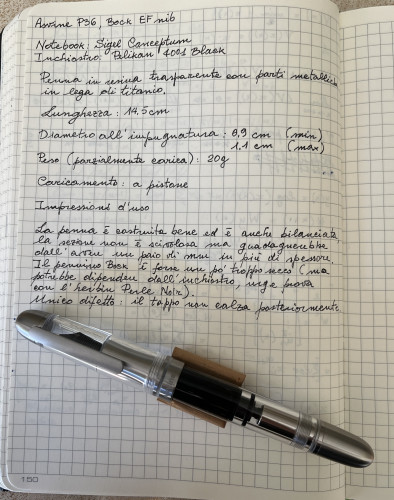 Asvine P36, Bock EF nib
Notebook: Sigel Conceptum
Inchiostro: Pelikan 4001 Black
Penna in resina trasparente con parti metalliche
in lega di titanio.
Lunghezza: 14.5cm
Diametro all'impugnatura: 0,9 cm (min)
1.1 cm (max)
Peso (parzialmente carica): 20g
Caricamento: a pistone
Impressioni d'uso
La penna è costruita bene ed è anche bilanciata,
la sezione non è scivolosa ma guadagnerebbe
dall'avere un paio di mm in più di spessore.
Il pennino Bock è forse un po' troppo secco (ma
potrebbe dipendere dall'inchiostro, urge prova
con l'herbin Perle Noir).
Unico difetto: il tappo non calza posteriormente
150